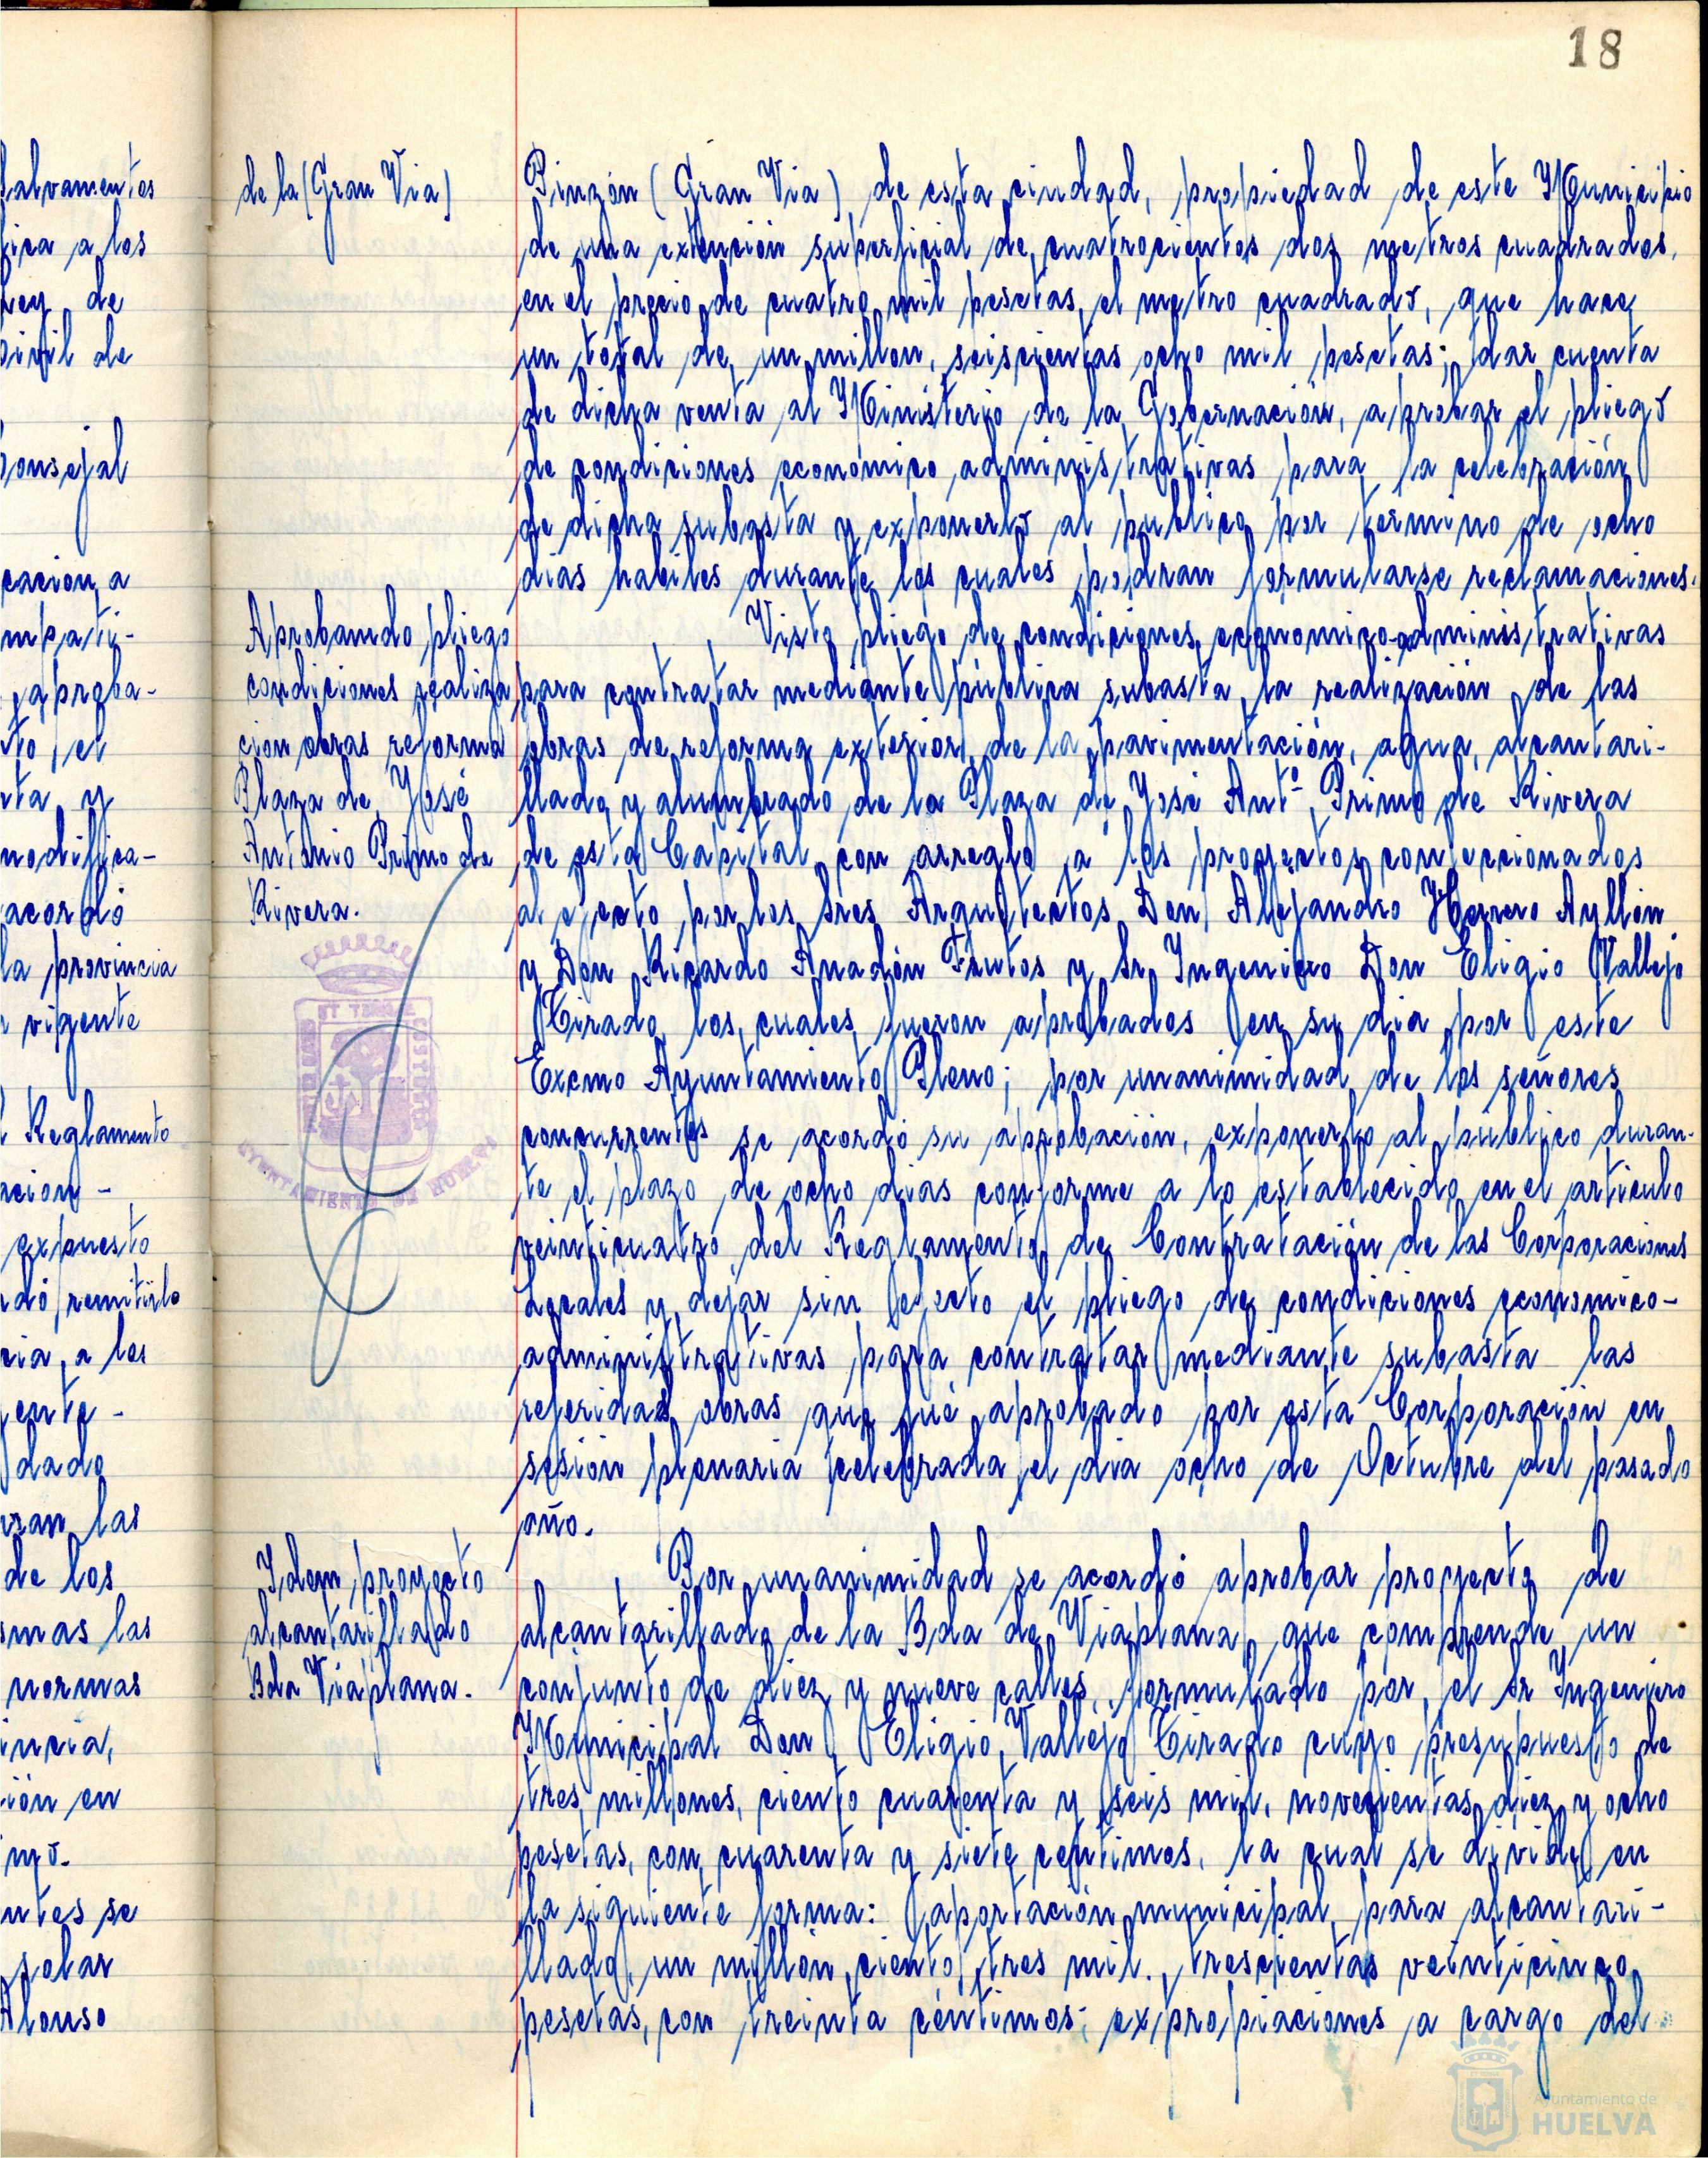 18
alvamentos
ica a los
ley de
ivil de
onsejal
cacion a
mpati-
aproba-
to, el
ta y
modifica-
acordó
la provincia
vigente
Reglamento
acion-
expuesto
dó remitirlo
cia, a los
ente-
dado
ran las
de los
mas las
normas
incia,
ión en
mo.
ntes se
solar
Alonso
de la (Gran Via)
Aprobando pliego
condiciones realiza
cion obras reforma
Plaza de José
Antonio Primo de
Rivera.
AYUNTAMIENTO DE HUELVA
Idem proyecto
alcantarillado
Bda Viaplana.
Pinzón (Gran Via), de esta ciudad, propiedad de este Municipio
de una extención superficial de cuatrocientos dos metros cuadrados,
en el precio de cuatro mil pesetas, el metro cuadrado, que hace
un total de un millon, seiscientas ocho mil pesetas; dar cuenta
de dicha venta al Ministerio de la Gobernación, aprobar el pliego
de condiciones económico administrativas para la celebración
de dicha subasta y exponerlo al publico por termino de ocho
dias habiles durante los cuales podran formularse reclamaciones.
Visto pliego de condiciones economico-administrativas
para contratar mediante pública subasta la realización de las
obras de reforma exterior, de la pavimentación, agua, alcantari-
llado y alumbrado de la Plaza de José Antº Primo de Rivera
de esta Capital con arreglo a los proyectos confeccionados
al efecto por los Sres Arquitectos Don Alejandro Herrero Ayllón
y Don Ricardo Anadón Frutos y Sr Ingeniero Don Eligio Vallejo
Tirado los cuales fueron aprobados en su dia por este
Excmo Ayuntamiento Pleno; por unanimidad de los señores
concurrentes se acordó su aprobación, exponerlo al público duran-
te el plazo de ocho dias conforme a lo establecido en el articulo
veinticuatro del Reglamento de Contratación de las Corporaciones
Locales y dejar sin efecto el pliego de condiciones economico-
administrativas para contratar mediante subasta las
referidas obras que fué aprobado por esta Corporación en
sesión plenaria celebrada el dia ocho de Octubre del pasado
año.
Por unanimidad se acordó aprobar proyecto de
alcantarillado de la Bda de Viaplana, que comprende un
conjunto de diez y nueve calles, formulado por el Sr Ingeniero
Municipal Don Eligio Vallejo Tirado cuyo presupuesto de
tres millones, ciento cuarenta y seis mil, novecientas diez y ocho
pesetas, con cuarenta y siete centimos, la cual se divide en
la siguiente forma: aportación municipal para alcantari-
llado, un millón, ciento, tres mil, trescientas veinticinco
pesetas, con treinta céntimos; expropiaciones a cargo del
Ayuntamiento de
HUELVA